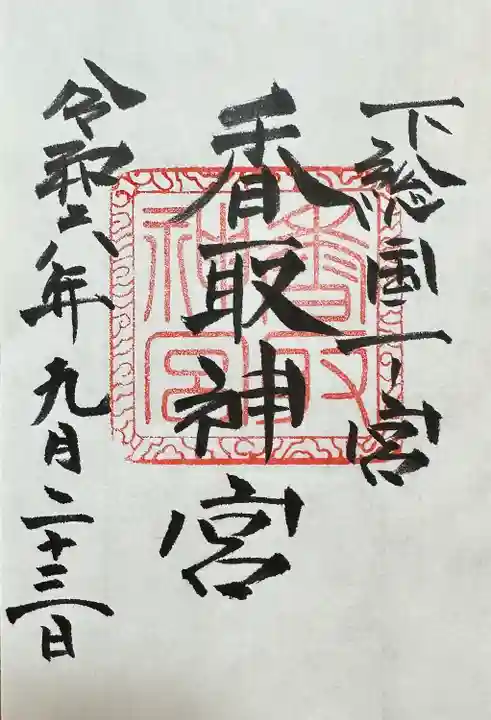 下総国一ノ宮
香取神宮
香取神宮
令和六年九月二十三日